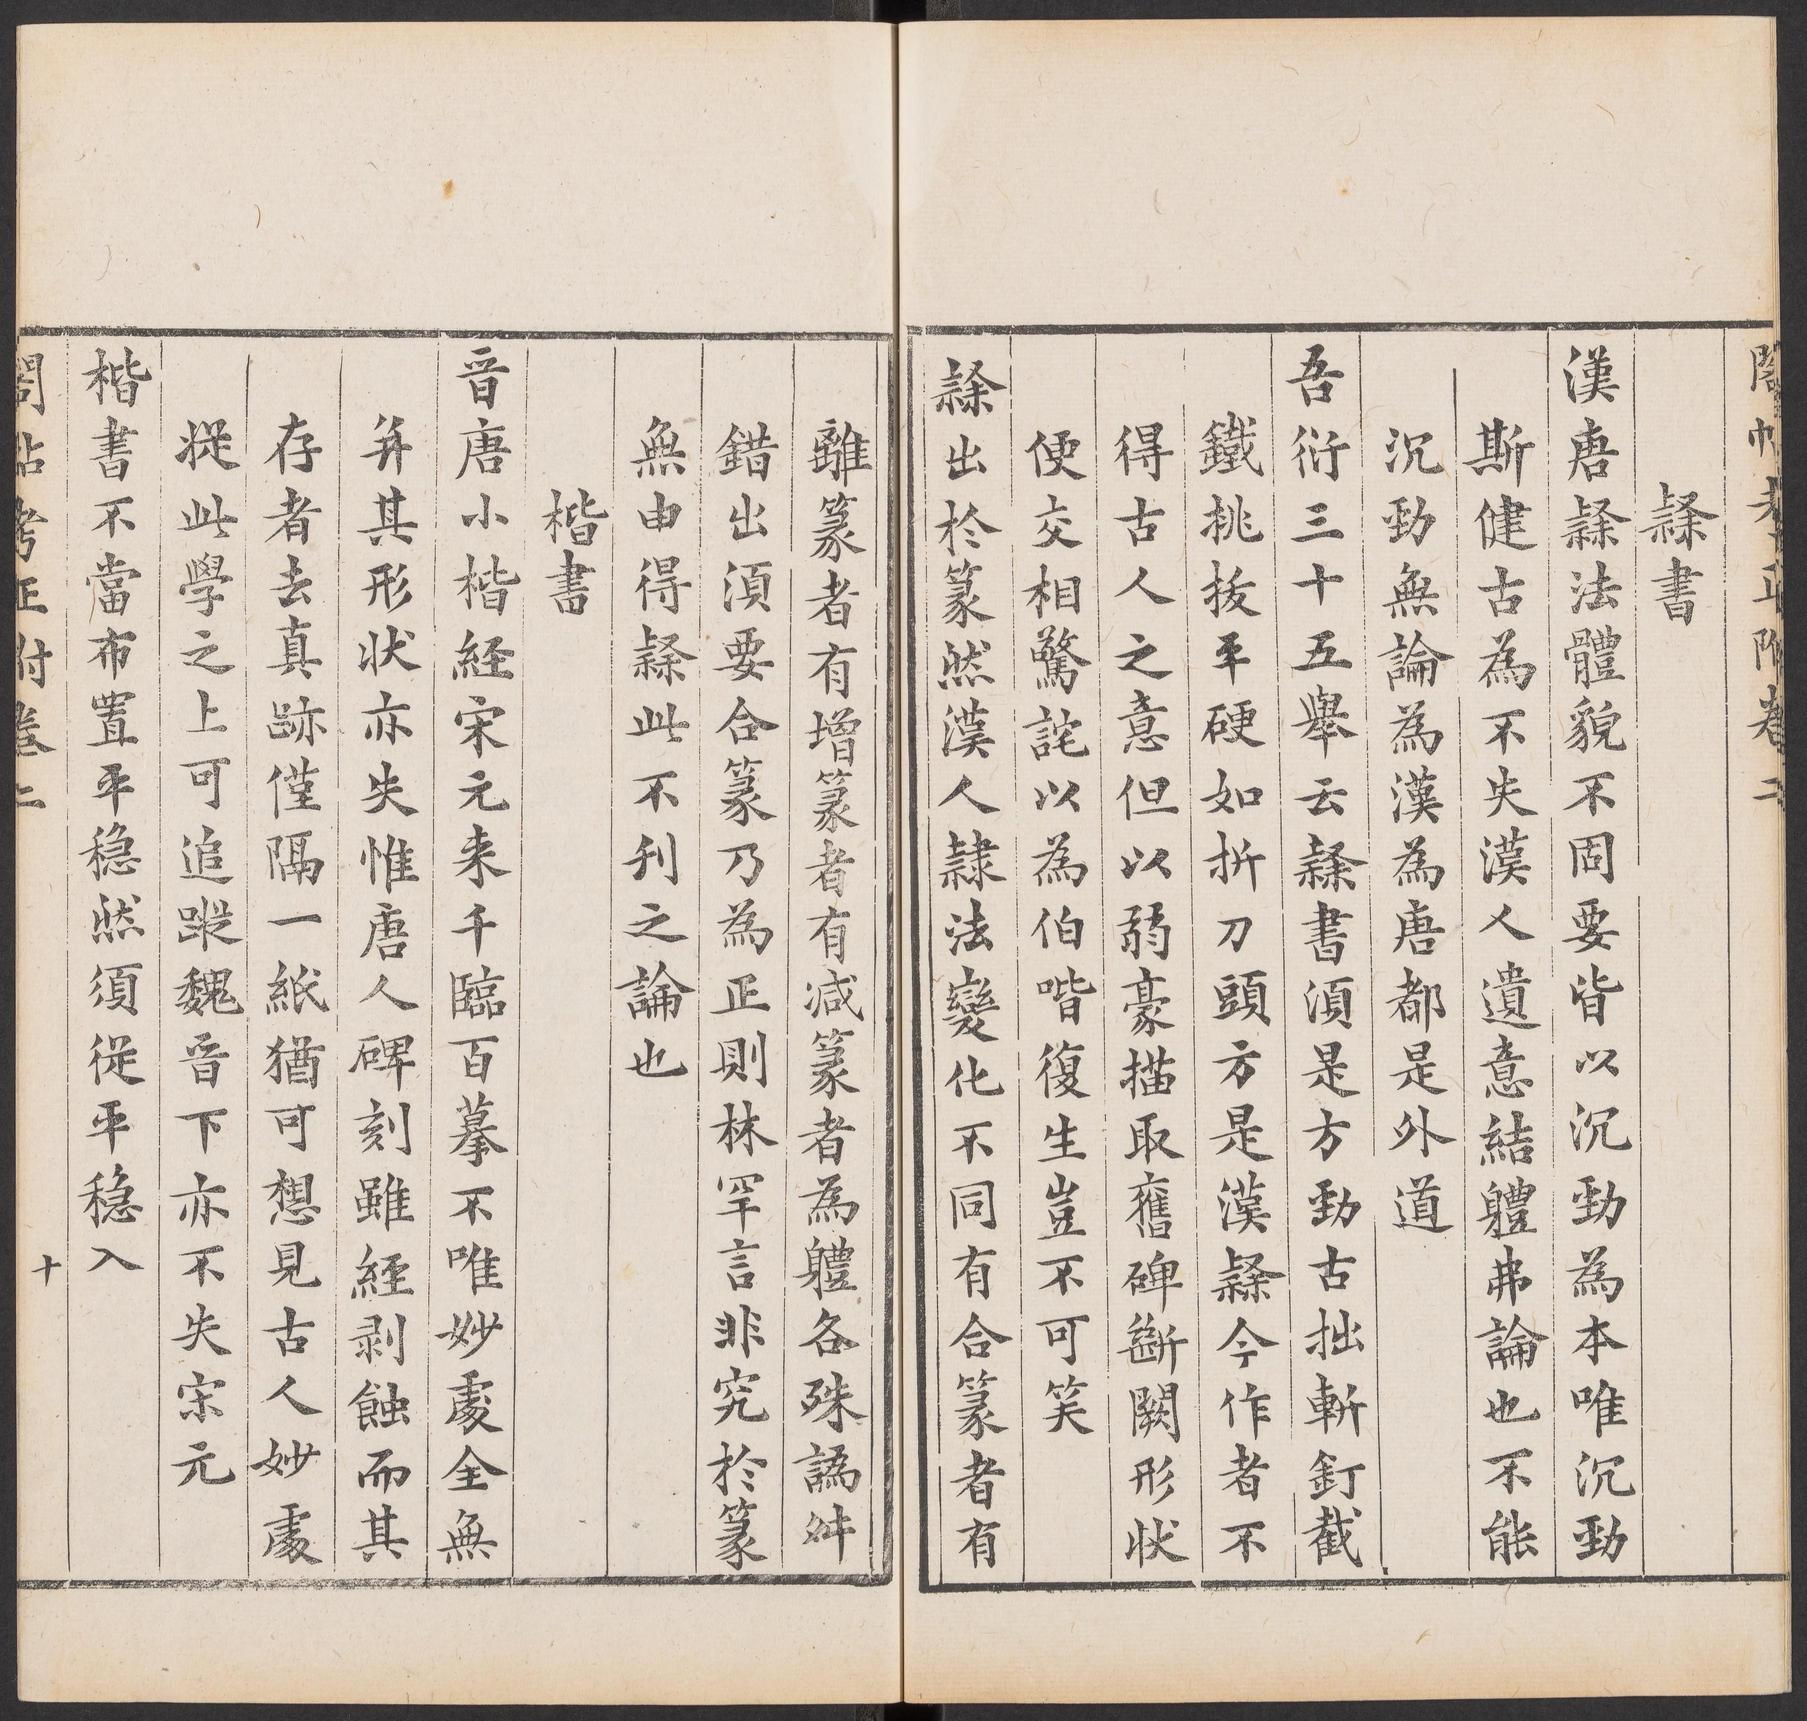 隷書
漢唐隷法體貌不同要皆以沉勁為本唯沉勁
斯健古為不失漢人遺意結軆弗論也不能
沉勁無論為漢為唐都是外道
吾衍三十五舉云隷書須是方勁古拙斬釘截
鐵挑拔平硬如折刀頭方是漢隷今作者不
得古人之意但以弱豪描取舊碑斷闕形狀
便交相驚詫以為伯喈復生豈不可笑
隷出於篆然漢人隸法變化不同有合篆者有
離篆者有增篆者有減篆者為軆各殊譌舛
錯出須要合篆乃為正則林罕言非究於篆
無由得隷此不刋之論也
楷書
晉唐小楷経宋元来千臨百摹不唯妙處全無
并其形狀亦失惟唐人碑刻雖經剥蝕而其
存者去真跡僅隔一紙猶可想見古人妙處
從此學之上可追蹤魏晉下亦不失宋元
楷書不當布置平穏然須從平穏入
閣帖考正附卷二
十